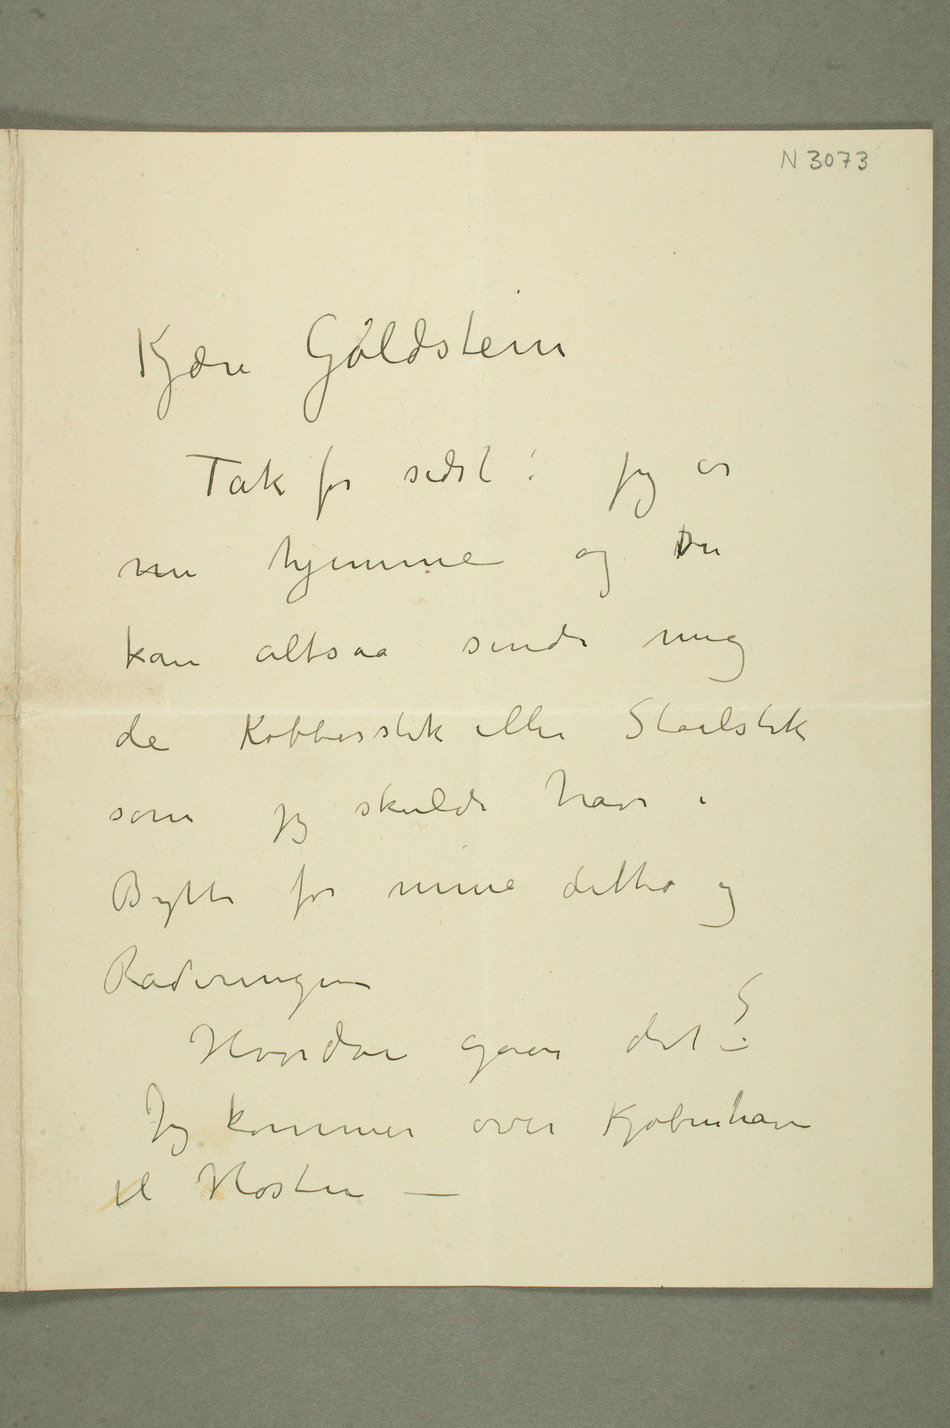 N 3073
Kjære Goldstein
Tak for sidst! Jeg er
nu hjemme og Du
kan altsaa sende mig
de Kobberstik eller Staalstik
som jeg skulde have i
Bytte for mine ditto og
Raderingen
Hvordan gaar det?
Jeg kommer over Kjøbenhavn
til Høsten —